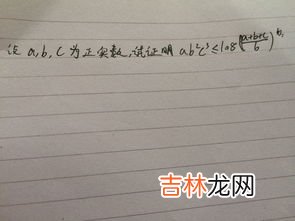 设 a,b,c 为正实数,试证明 ab²c³≤108((a+b+c)/6)⁶.
吉林龙网